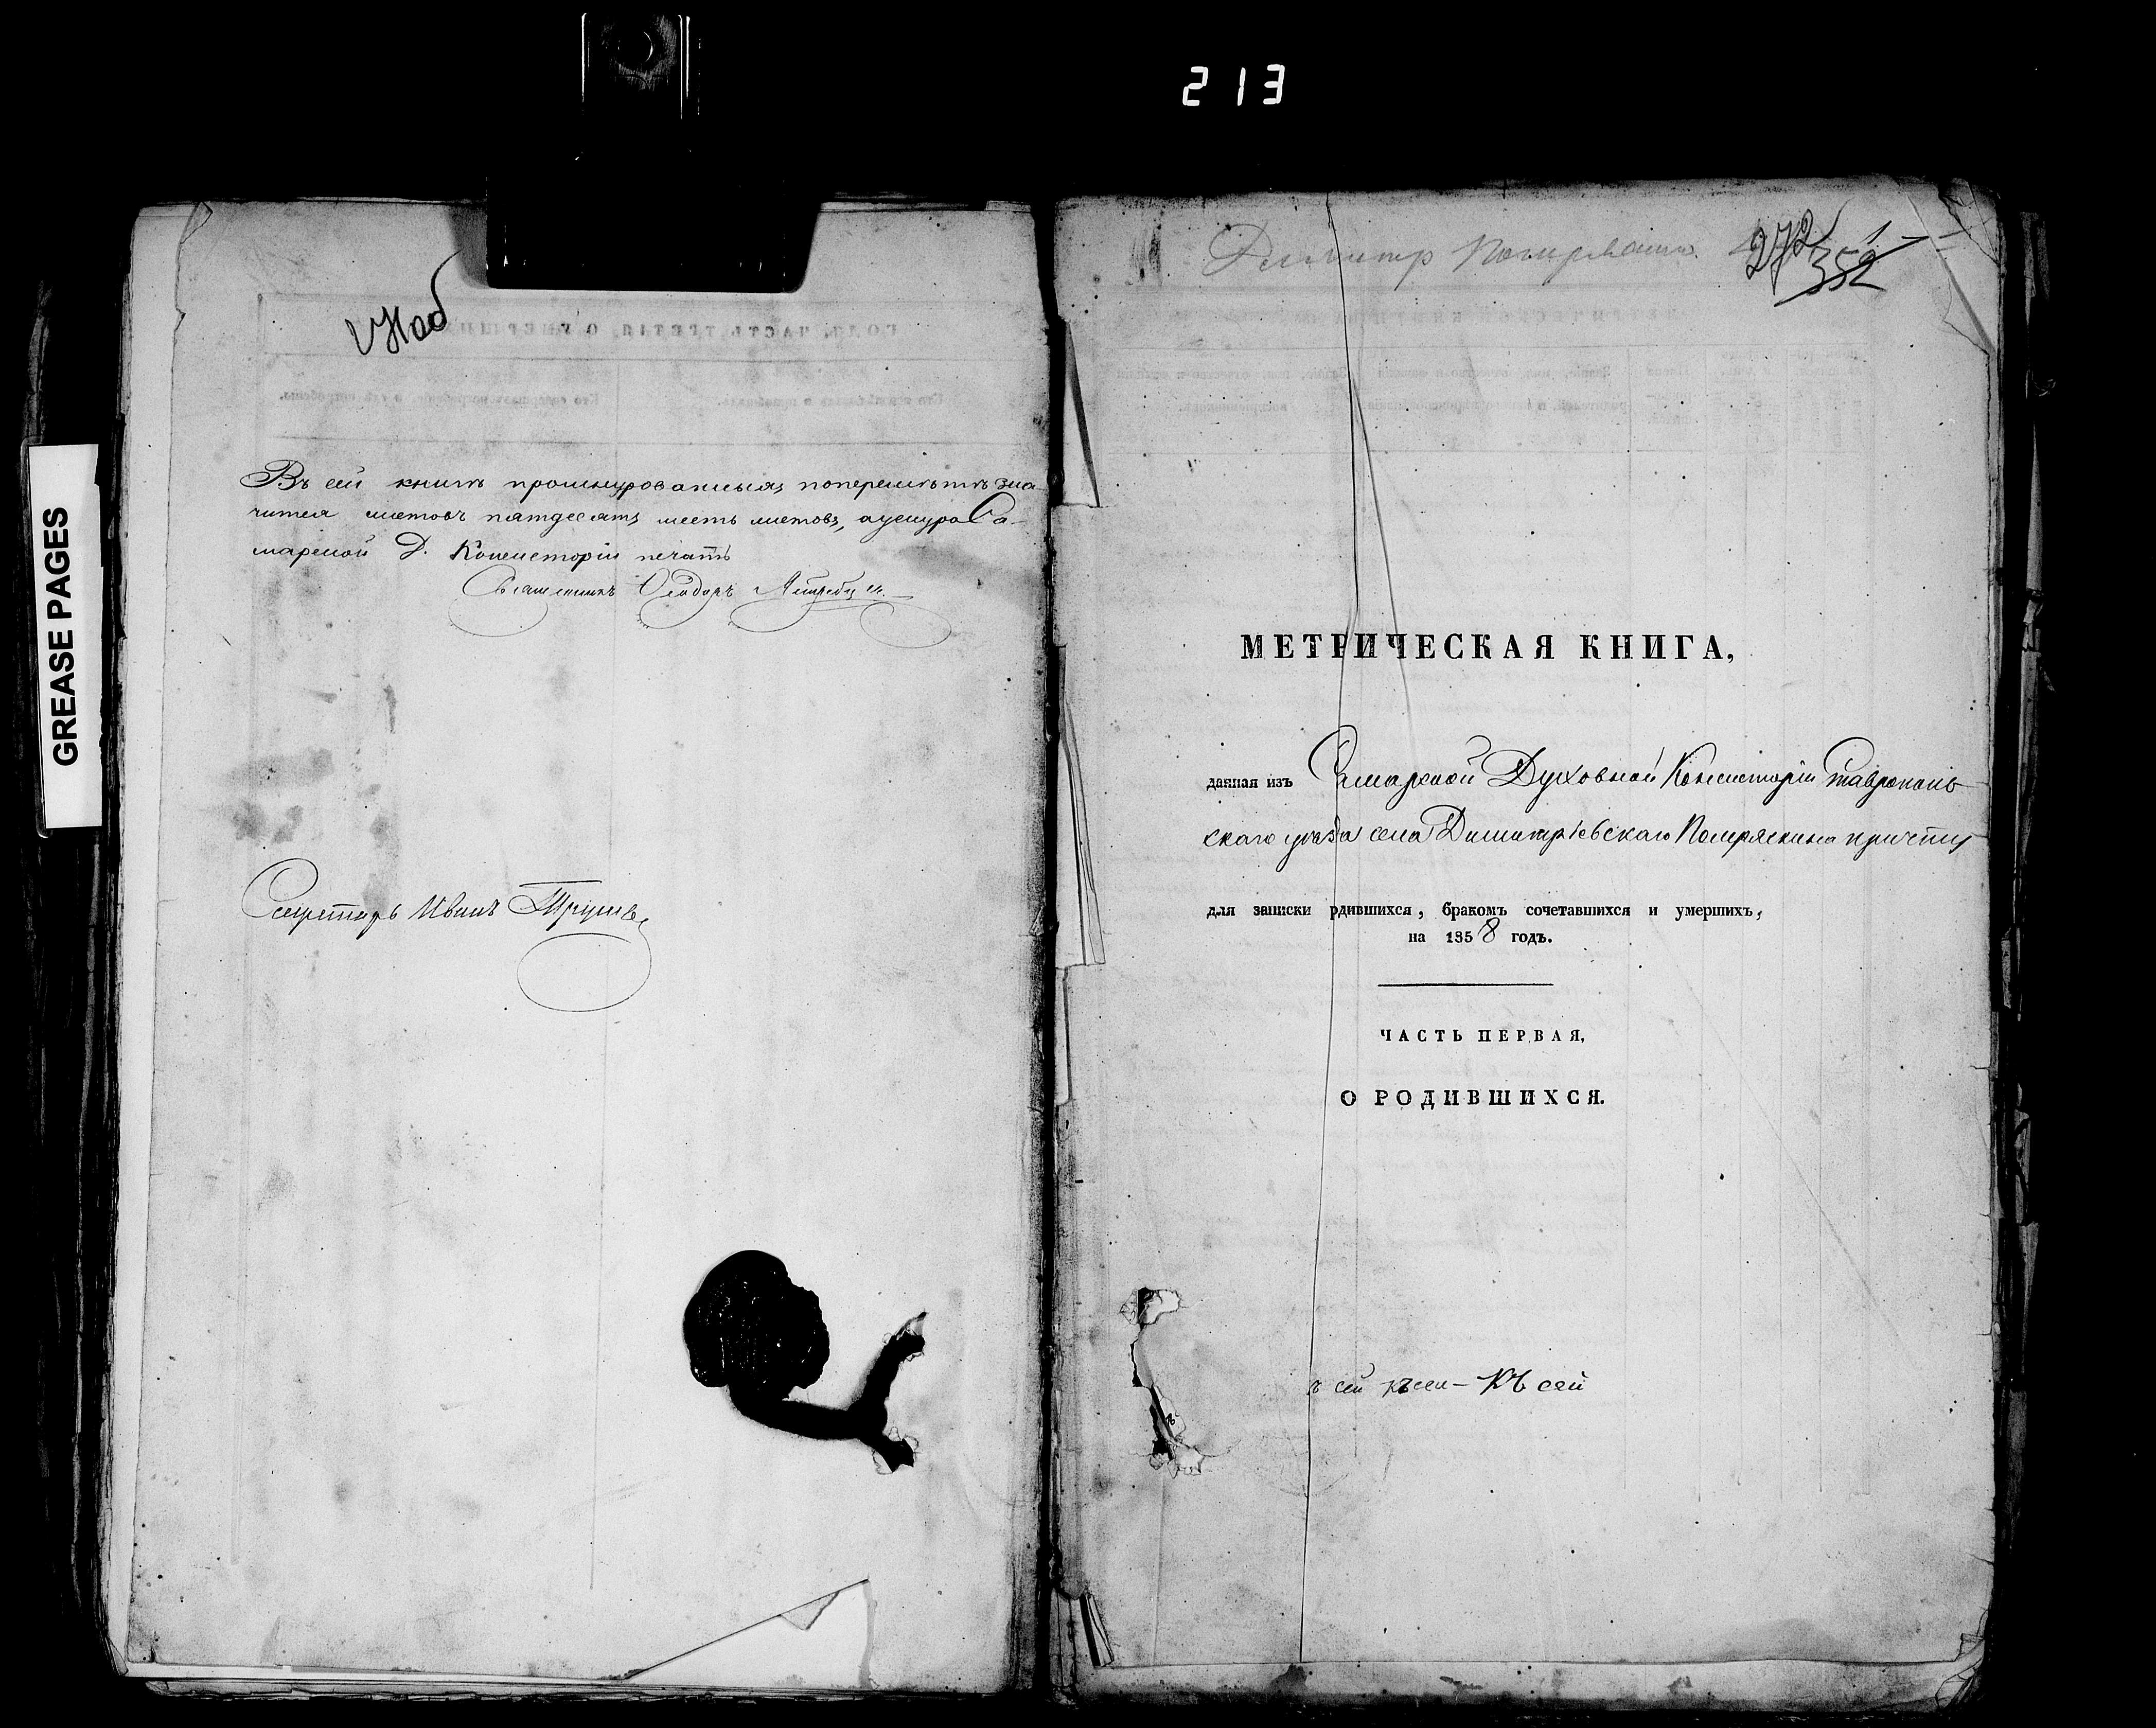 213
GREASE PAGES
Въ сей книгѣ прошнурованныхъ и перемѣченныхъ зна-
чится листовъ пятдесятъ шесть листовъ, а у шнура Са-
марской Д. Консисторіи печать
Священникъ Ѳеодоръ
Секретарь Иванъ
Димитр Помряскино
272
352
МЕТРИЧЕСКАЯ КНИГА,
данная изъ Самарской Духовной Консисторіи Ставрополь-
скаго уѣзда села Димитріевскаго Помряскина причту
для записки рдившихся, бракомъ сочетавшихся и умершихъ,
на 1858 годъ.
ЧАСТЬ ПЕРВАЯ,
О РОДИВШИХСЯ.
ъ сей къ сей – Къ сей